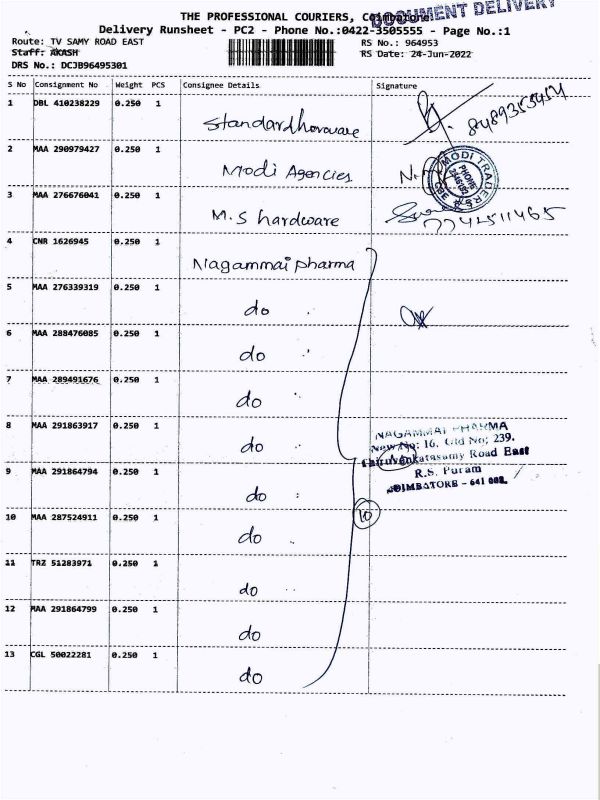 DOCUMENT DELIVERY
THE PROFESSIONAL COURIERS, Coimbatore.
Delivery Runsheet - PC2 - Phone No.:0422-3505555 - Page No.:1
Route: TV SAMY ROAD EAST RS No.: 964953
Staff: AKASH RS Date: 24-Jun-2022
DRS No.: DCJB96495301
S No Consignment No Weight PCS Consignee Details Signature
1 DBL 410238229 0.250 1 8489353454
2 MAA 290979427 0.250 1 Modi Agencies MODI TRADERS PHONE CBE
3 MAA 276676041 0.250 1 M.S hardware
4 CNR 1626945 0.250 1 Nagammai pharma
5 MAA 276339319 0.250 1 do
6 MAA 288476085 0.250 1 do
7 MAA 289491676 0.250 1 do
8 MAA 291863917 0.250 1 do
NAGAMMAI PHARMA
New No: 16, Old No; 239.
Thiruvenkatasamy Road East
R.S. Puram
COIMBATORE - 641 002.
9 MAA 291864794 0.250 1 do
10
10 MAA 287524911 0.250 1 do
11 TRZ 51283971 0.250 1 do
12 MAA 291864799 0.250 1 do
13 CGL 50022281 0.250 1 do